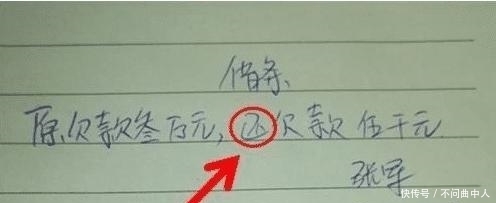 借条
原欠款叁万元,还欠款伍千元
张军
快传号 / 不问曲中人